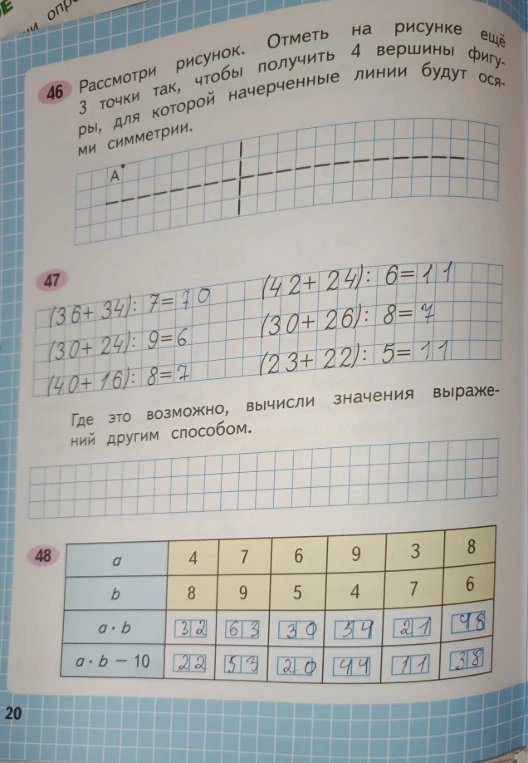 46 Рассмотри рисунок. Отметь на рисунке ещё
3 точки так, чтобы получить 4 вершины фигу-
ры, для которой начерченные линии будут ося-
ми симметрии.
А
47
(36+34):7=10 (42+24):6=11
(30+24):9=6 (30+26):8=7
(40+16):8=7 (23+22):5=11
Где это возможно, вычисли значения выраже-
ний другим способом.
48 a 4 7 6 9 3 8
b 8 9 5 4 7 6
a · b 32 63 30 54 21 48
a · b − 10 22 53 20 44 11 38
20